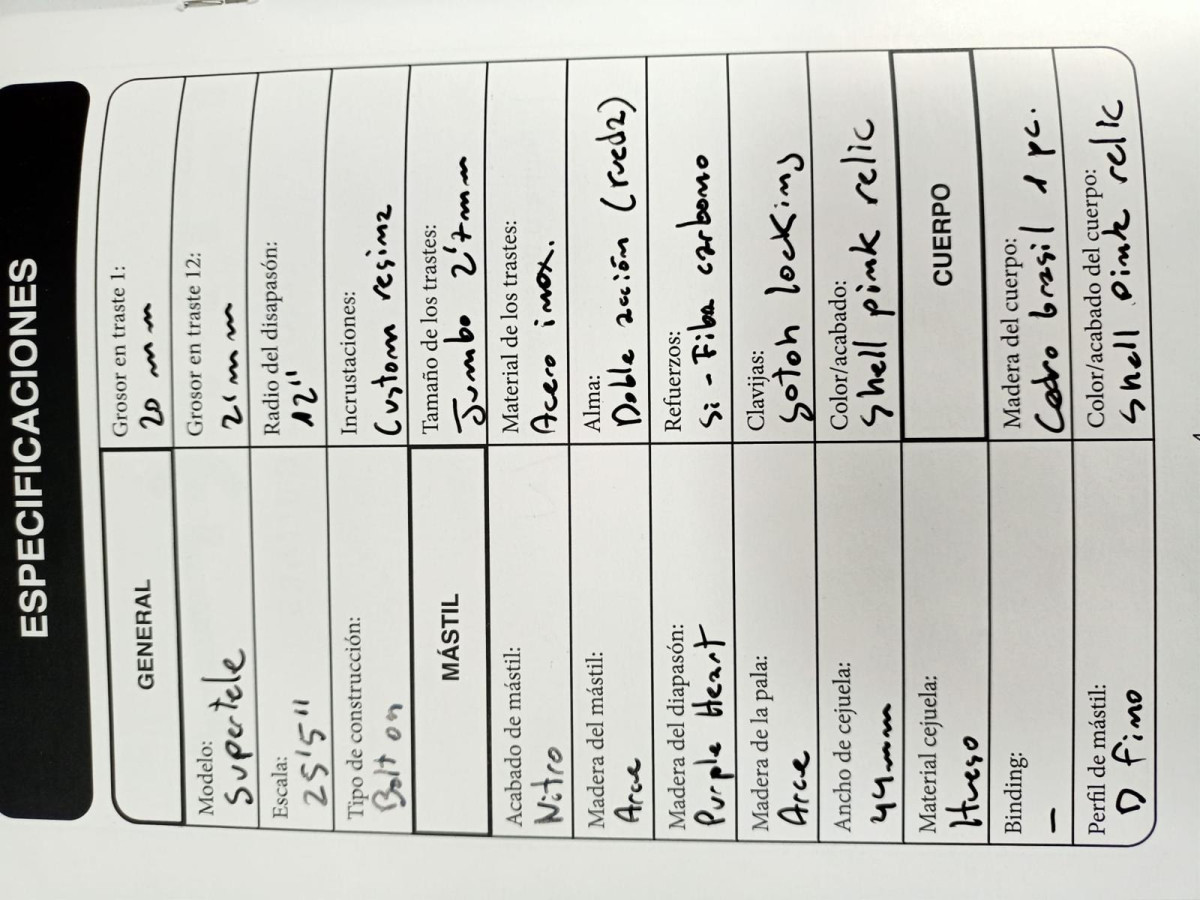 ESPECIFICACIONES
GENERAL
Modelo:
Supertele
Escala:
25'5"
Tipo de construcción:
Bolt on
MÁSTIL
Acabado de mástil:
Nitro
Madera del mástil:
Arce
Madera del diapasón:
Purple Heart
Madera de la pala:
Arce
Ancho de cejuela:
44mm
Material cejuela:
Hueso
Binding:
—
Perfil de mástil:
D fino
Grosor en traste 1:
20 mm
Grosor en traste 12:
21 mm
Radio del disapasón:
12"
Incrustaciones:
Custom resina
Tamaño de los trastes:
Jumbo 2'7mm
Material de los trastes:
Acero inox.
Alma:
Doble acción (rueda)
Refuerzos:
Si - Fibra carbono
Clavijas:
Gotoh locking
Color/acabado:
Shell pink relic
CUERPO
Madera del cuerpo:
Cedro brasil 1 pc.
Color/acabado del cuerpo:
Shell pink relic